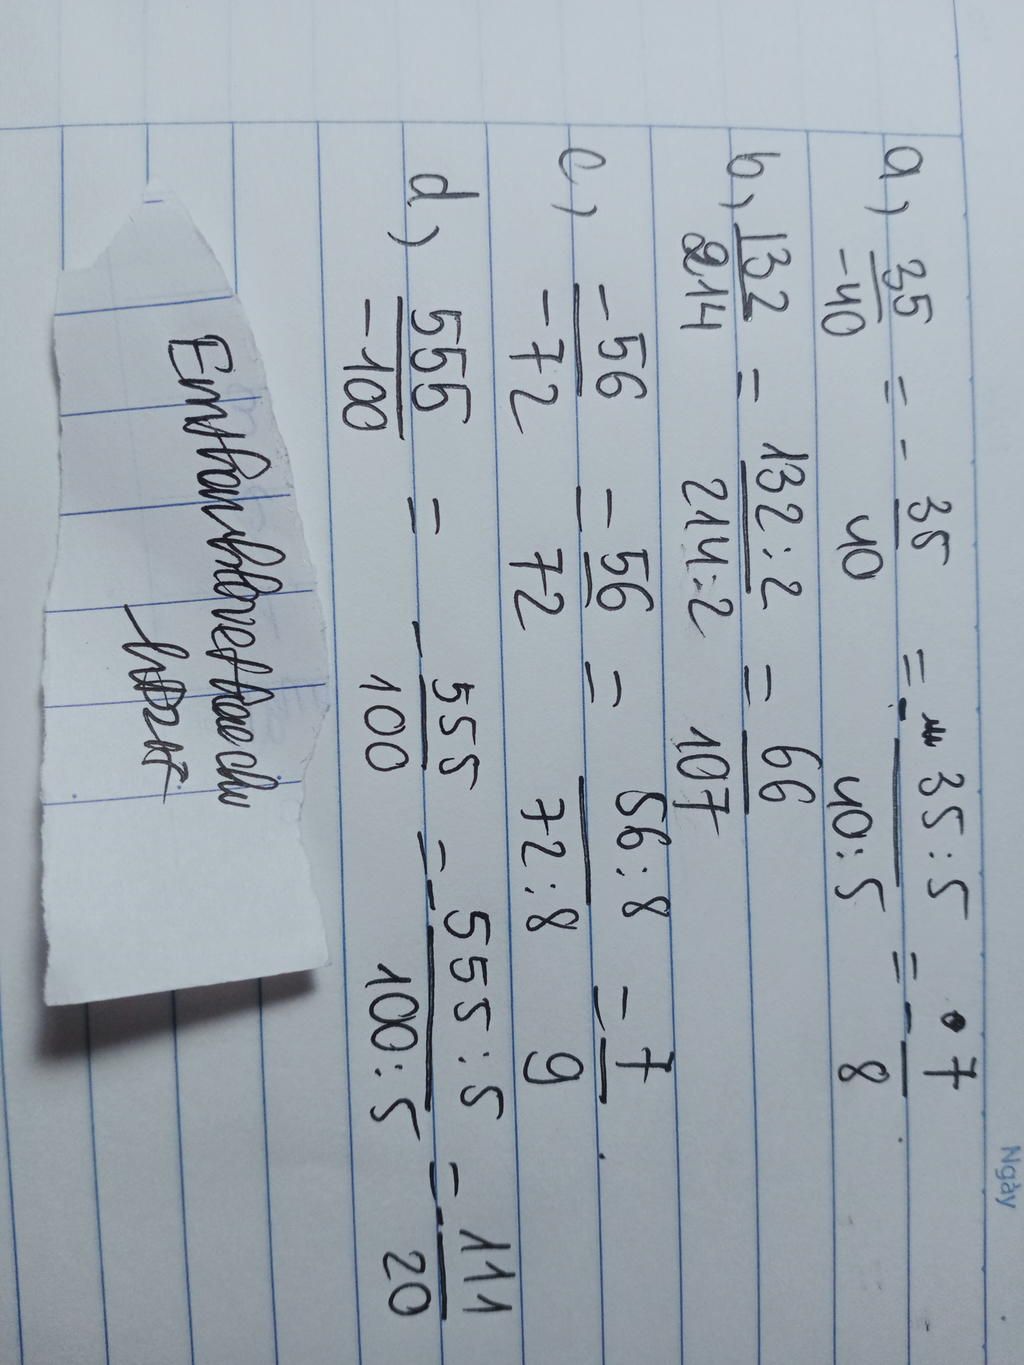 Ngày
a, 35/-40 = - 35/40 = - 35:5/40:5 = - 7/8
b, 132/214 = 132:2/214:2 = 66/107
c, -56/-72 = 56/72 = 56:8/72:8 = 7/9
d, 555/-100 = - 555/100 = - 555:5/100:5 = - 111/20